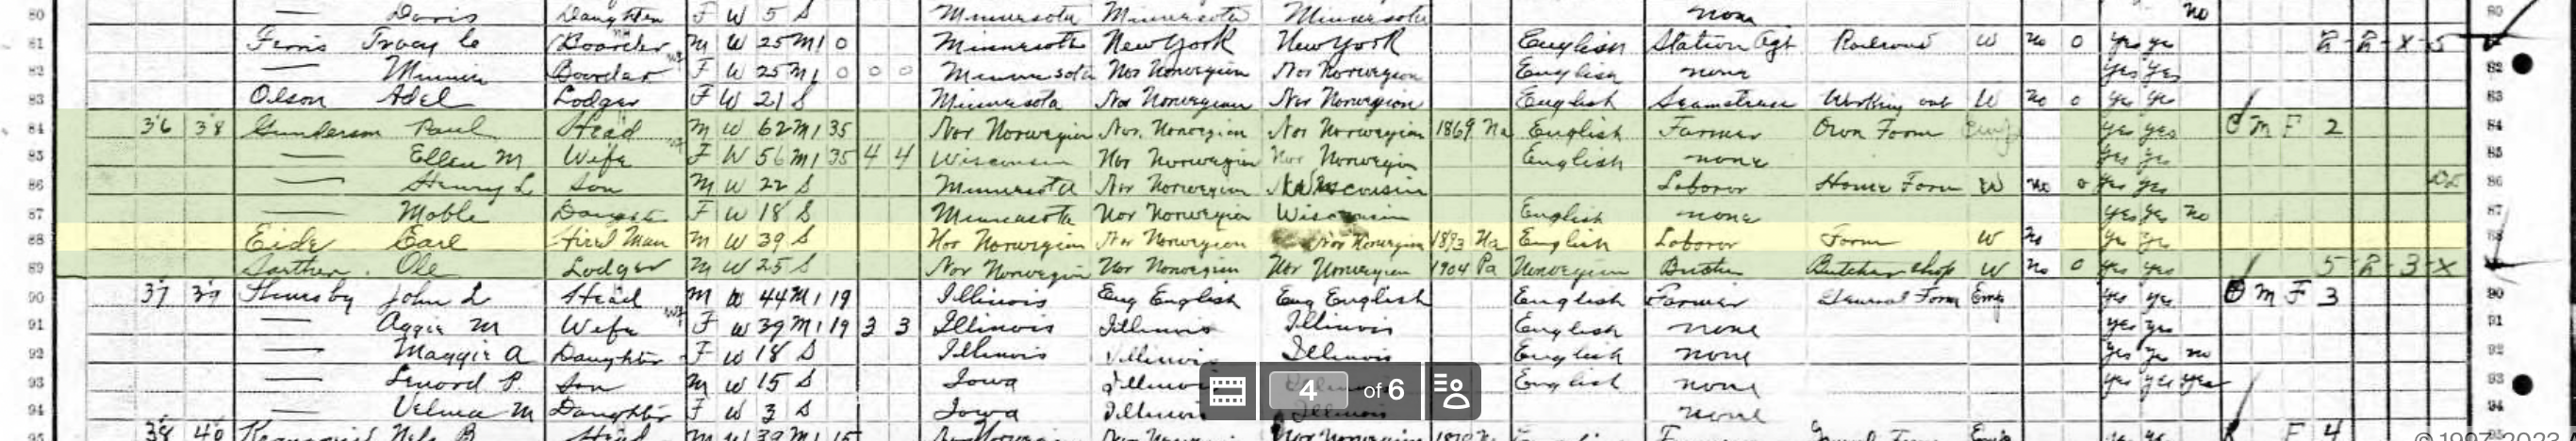 80 — Doris Daughter F W 5 S Minnesota Minnesota Minnesota none no 80
81 Ferris Tracy C Boarder M W 25 M1 0 Minnesota New York New York English Station Agt Railroad W no 0 yes yes 2-2-X-5
82 — Minnie Boarder F W 25 M1 0 0 0 Minnesota Nor Norwegian Nor Norwegian English none yes yes 82
83 Olson Adel Lodger F W 21 S Minnesota Nor Norwegian Nor Norwegian English Seamstress Working out W no 0 yes yes 83
84 36 38 Gunderson Paul Head M W 62 M1 35 Nor Norwegian Nor. Norwegian Nor Norwegian 1869 Na English Farmer Own Farm Emp yes yes O M F 2 84
85 — Ellen M Wife F W 56 M1 35 4 4 Wisconsin Nor Norwegian Nor Norwegian English none yes yes 85
86 — Henry L Son M W 22 S Minnesota Nor Norwegian Wisconsin Laborer Home Farm W no 0 yes yes 86
87 — Mable Daughter F W 18 S Minnesota Nor Norwegian Wisconsin English none yes yes no 87
88 Eide Carl Hired Man M W 39 S Nor Norwegian Nor Norwegian Nor Norwegian 1893 Na English Laborer Farm W no yes yes 88
89 Ole Lodger M W 25 S Nor Norwegian Nor Norwegian Nor Norwegian 1904 Pa Norwegian Butcher shop W no 0 yes yes 5-2-3-X
90 37 39 John L Head M W 44 M1 19 Illinois Eng English Eng English English Farmer General Farm Emp yes yes O M F 3 90
91 — Aggie M Wife F W 39 M1 19 3 3 Illinois Illinois Illinois English none yes yes 91
92 — Maggie A Daughter F W 18 S Illinois Illinois Illinois English none yes yes no 92
93 — Lenord P. Son M W 15 S Iowa Illinois English none yes yes yes 93
94 — Velma M Daughter F W 3 S Iowa Illinois Illinois none 94
95 38 40 Nels B Head M W 39 M1 15 Nor Norwegian F 4 95
4 of 6